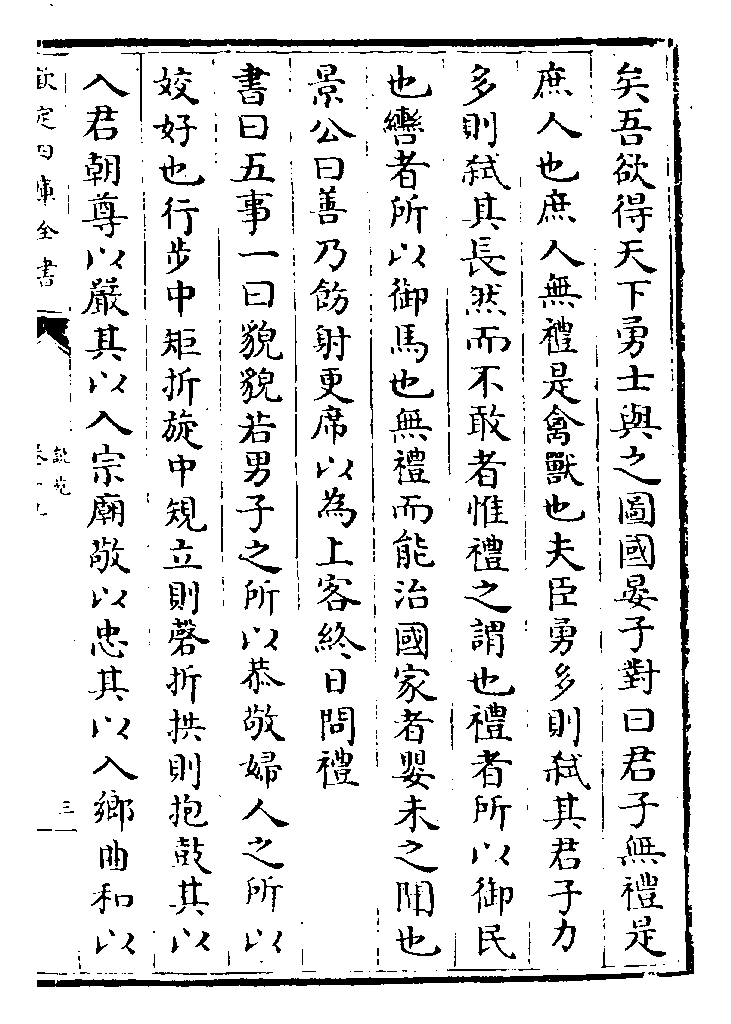 矣吾欲得天下勇士與之圖國晏子對曰君子無禮是
庶人也庶人無禮是禽獸也夫臣勇多則弑其君子力
多則弑其長然而不敢者惟禮之謂也禮者所以御民
也轡者所以御馬也無禮而能治國家者嬰未之聞也
景公曰善乃飭射更席以為上客終日問禮
書曰五事一曰貌貌若男子之所以恭敬婦人之所以
姣好也行步中矩折旋中規立則磬折拱則抱鼓其以
入君朝尊以嚴其以入宗廟敬以忠其以入鄉曲和以
欽定四庫全書
說苑
卷十九
三